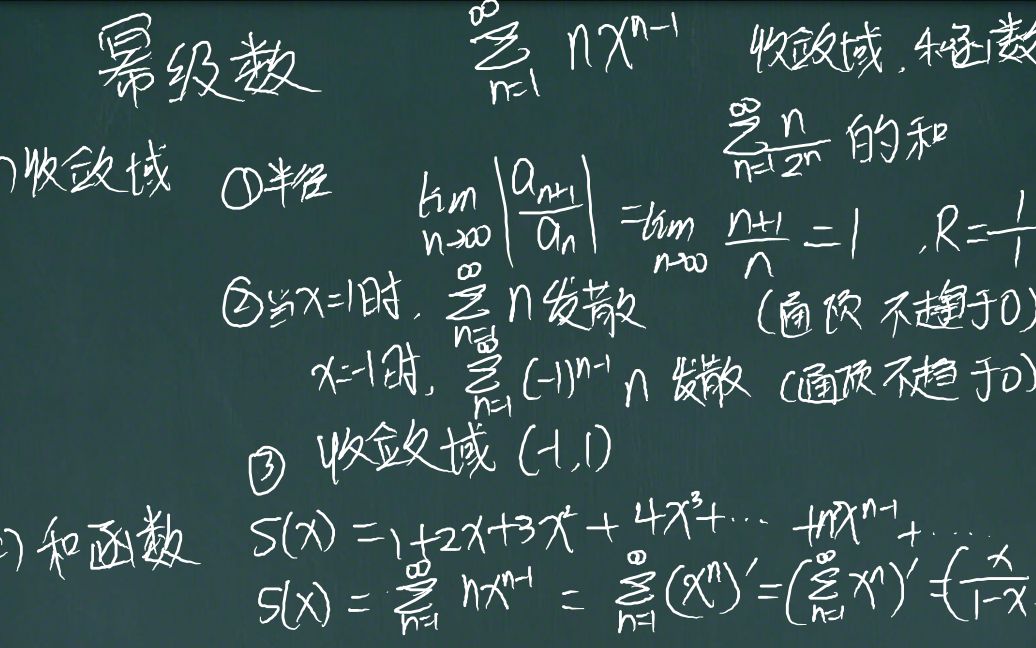 幂级数 ∑_{n=1}^{∞} nx^{n-1} 收敛域,和函数
∑_{n=1}^{∞} n/2^n 的和
)收敛域 ①半径 lim_{n→∞} |a_{n+1}/a_n| = lim_{n→∞} (n+1)/n = 1 , R = 1/1
②当x=1时, ∑_{n=1}^{∞} n 发散 (通项 不趋于0)
x=-1时, ∑_{n=1}^{∞} (-1)^{n-1} n 发散 (通项不趋于0)
③ 收敛域 (-1,1)
)和函数 S(x) = 1+2x+3x²+4x³+⋯+nx^{n-1}+⋯
S(x) = ∑_{n=1}^{∞} nx^{n-1} = ∑_{n=1}^{∞} (x^n)′ = (∑_{n=1}^{∞} x^n)′ = (x/(1-x)